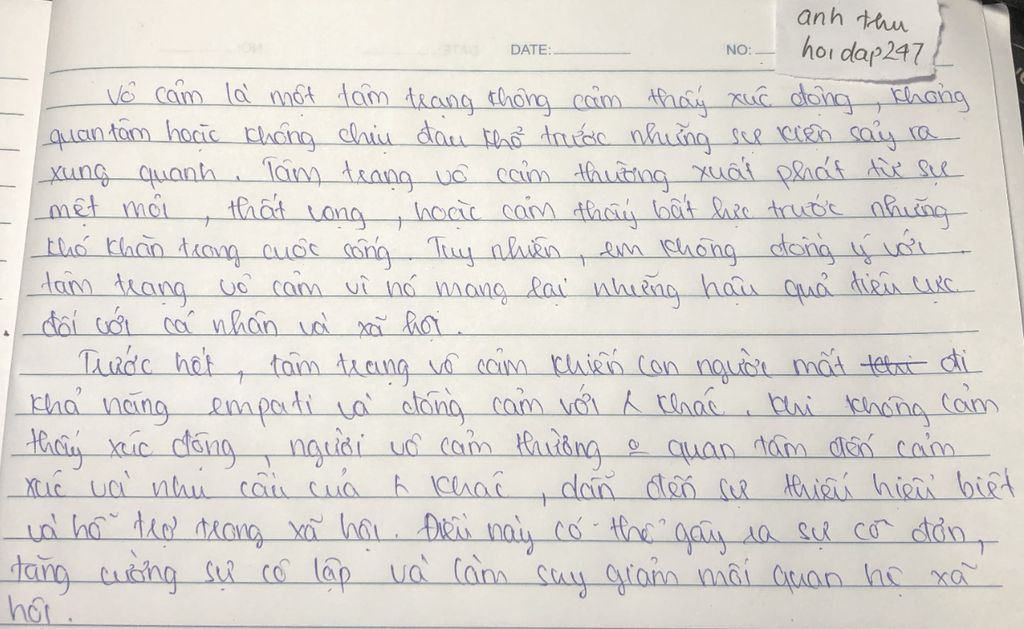 anh thu
hoidap247
DATE:
NO:
Vô cảm là một tâm trạng không cảm thấy xúc động, không
quan tâm hoặc không chịu đau khổ trước những sự kiện sảy ra
xung quanh. Tâm trạng vô cảm thường xuất phát từ sự
mệt mỏi, thất vọng, hoặc cảm thấy bất lực trước những
khó khăn trong cuộc sống. Tuy nhiên, em không đồng ý với
tâm trạng vô cảm vì nó mang lại những hậu quả tiêu cực
đối với cá nhân và xã hội.
Trước hết, tâm trạng vô cảm khiến con người mất đi
khả năng empati và đồng cảm với khác. Khi không cảm
thấy xúc động, người vô cảm thường quan tâm đến cảm
xúc và nhu cầu của khác, dẫn đến sự thiếu hiểu biết
và hỗ trợ trong xã hội. Điều này có thể gây ra sự cô đơn,
tăng cường sự cô lập và làm suy giảm mối quan hệ xã
hội.